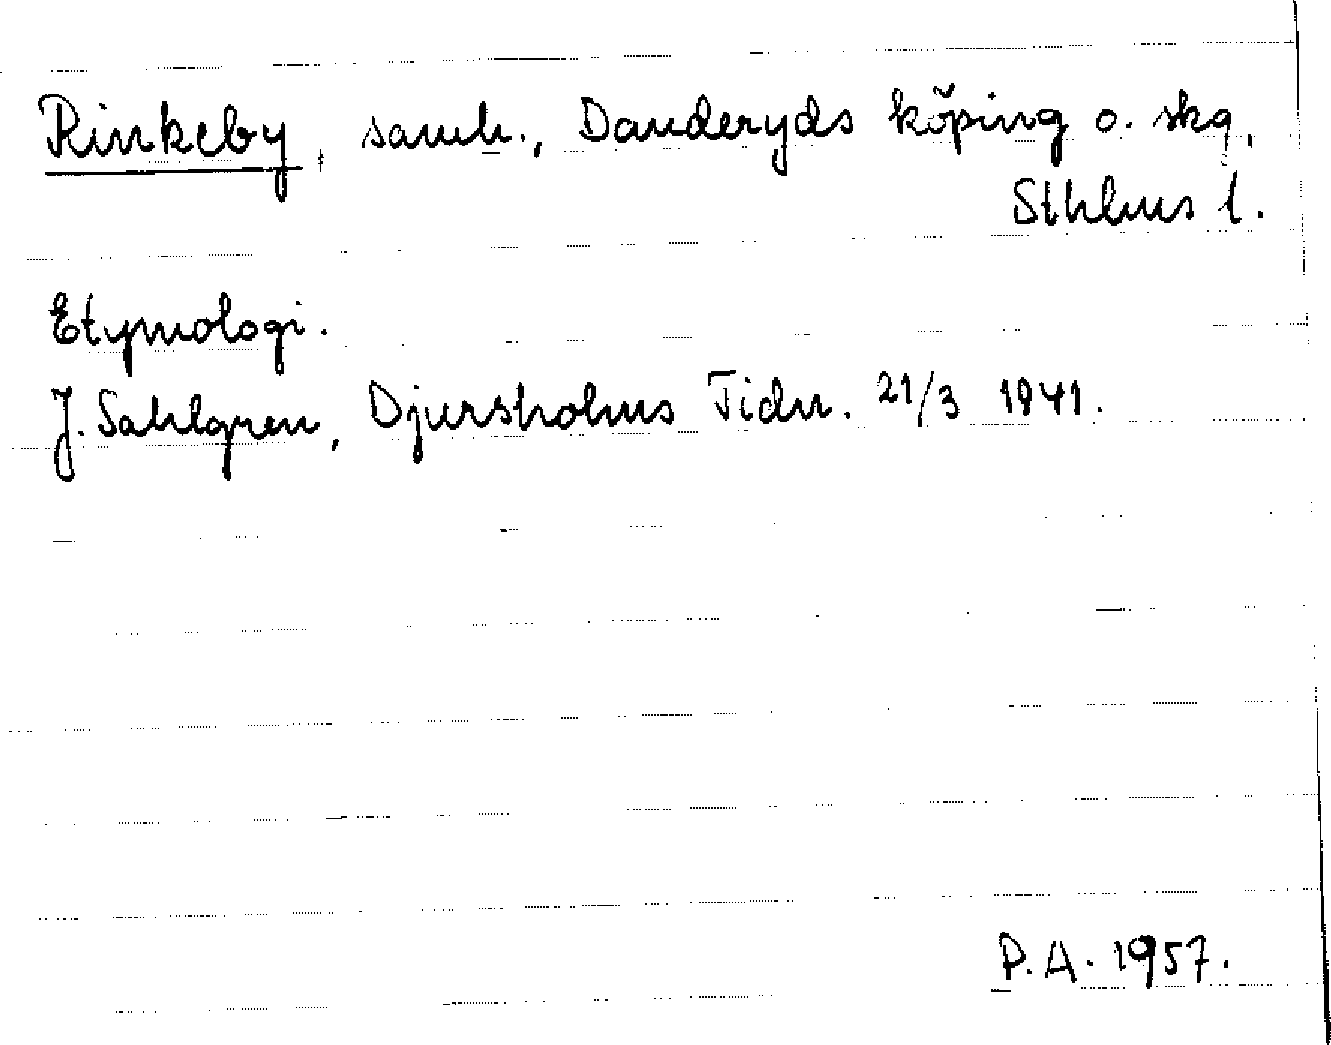 Rinkeby, samh., Danderyds köping o. skg,
Sthlms l.
Etymologi.
J. Sahlgren, Djursholms Tidn. 21/3 1941.
P.A. 1957.